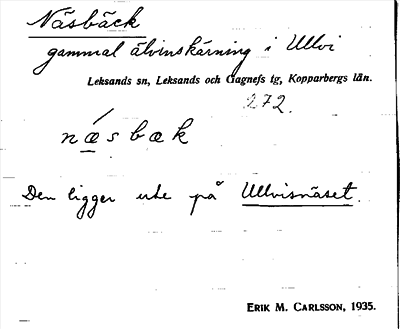 Näsbäck
gammal älvinskärning i Ullvi
Leksands sn, Leksands och Gagnefs tg, Kopparbergs län.
272.
nǽ̲sbæk
Den ligger ute på Ullvisnäset.
ERIK M. CARLSSON, 1935.